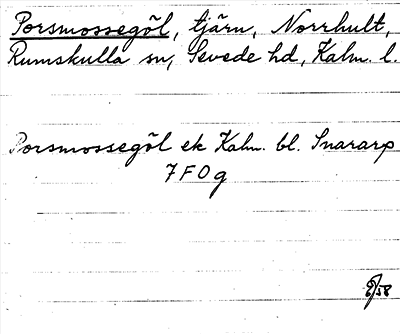 Porsmossegöl, tjärn, Norrhult,
Rumskulla sn, Sevede hd, Kalm. l.
Porsmossegöl ek Kalm. bl. Snararp
7 F 0 g
/58